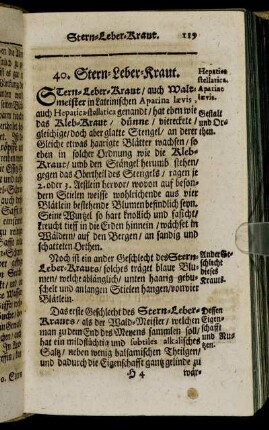 Stern-Leber-Kraut. 119
40. Stern-Leber-Kraut.
Hepatica
stellatica.
Aparine
lævis.
STern-Leber-Kraut / auch Wald-
meister in Lateinischen Aparina lævis,
auch Hepatica-stellatica genandt / hat eben wie
das Kleb-Kraut / dünne / viereckete /
gleichige / doch aber glatte Stengel / an derer
Gestalt
und Or-
then.
Gleiche etwas haarigte Blätter wachsen / so
eben in solcher Ordnung wie die Kleb-
Kraut / umb den Stängel herumb stehen /
gegen das Obertheil des Stengels / ragen je
2. oder 3. Aestlein hervor / worvon auf beson-
dern Stielen weisse wohlriechende aus vier
Blätlein bestehende Blumen befindlich seyn.
Seine Wurtzel so hart knollich und fasicht /
kreucht tieff in die Erden hinnein / wächset in
Wäldern / auf den Bergen / an sandig und
schatteten Orthen.
Noch ist ein ander Geschlecht des Stern-
Leber-Krauts / solches träget blaue Blu-
men / welche ablänglich / unten haarig gebu-
schelt und anlangen Stielen hangen / vor vier
Blätlein.
Ander Ge-
schlecht
dieses
Krauts.
Das erste Geschlecht des Stern-Leber-
Krautes / als der Wald-Meister / welchen
man zu dem End des Meyens sammlen soll /
hat ein mildflüchtig und subtiles alkalisches
Saltz / neben wenig balsamischen Theilgen /
und dadurch die Eigenschafft gantz gelinde zu
Dessen
Eigen-
schafft
und Nu-
tzen.
H 4 wär-